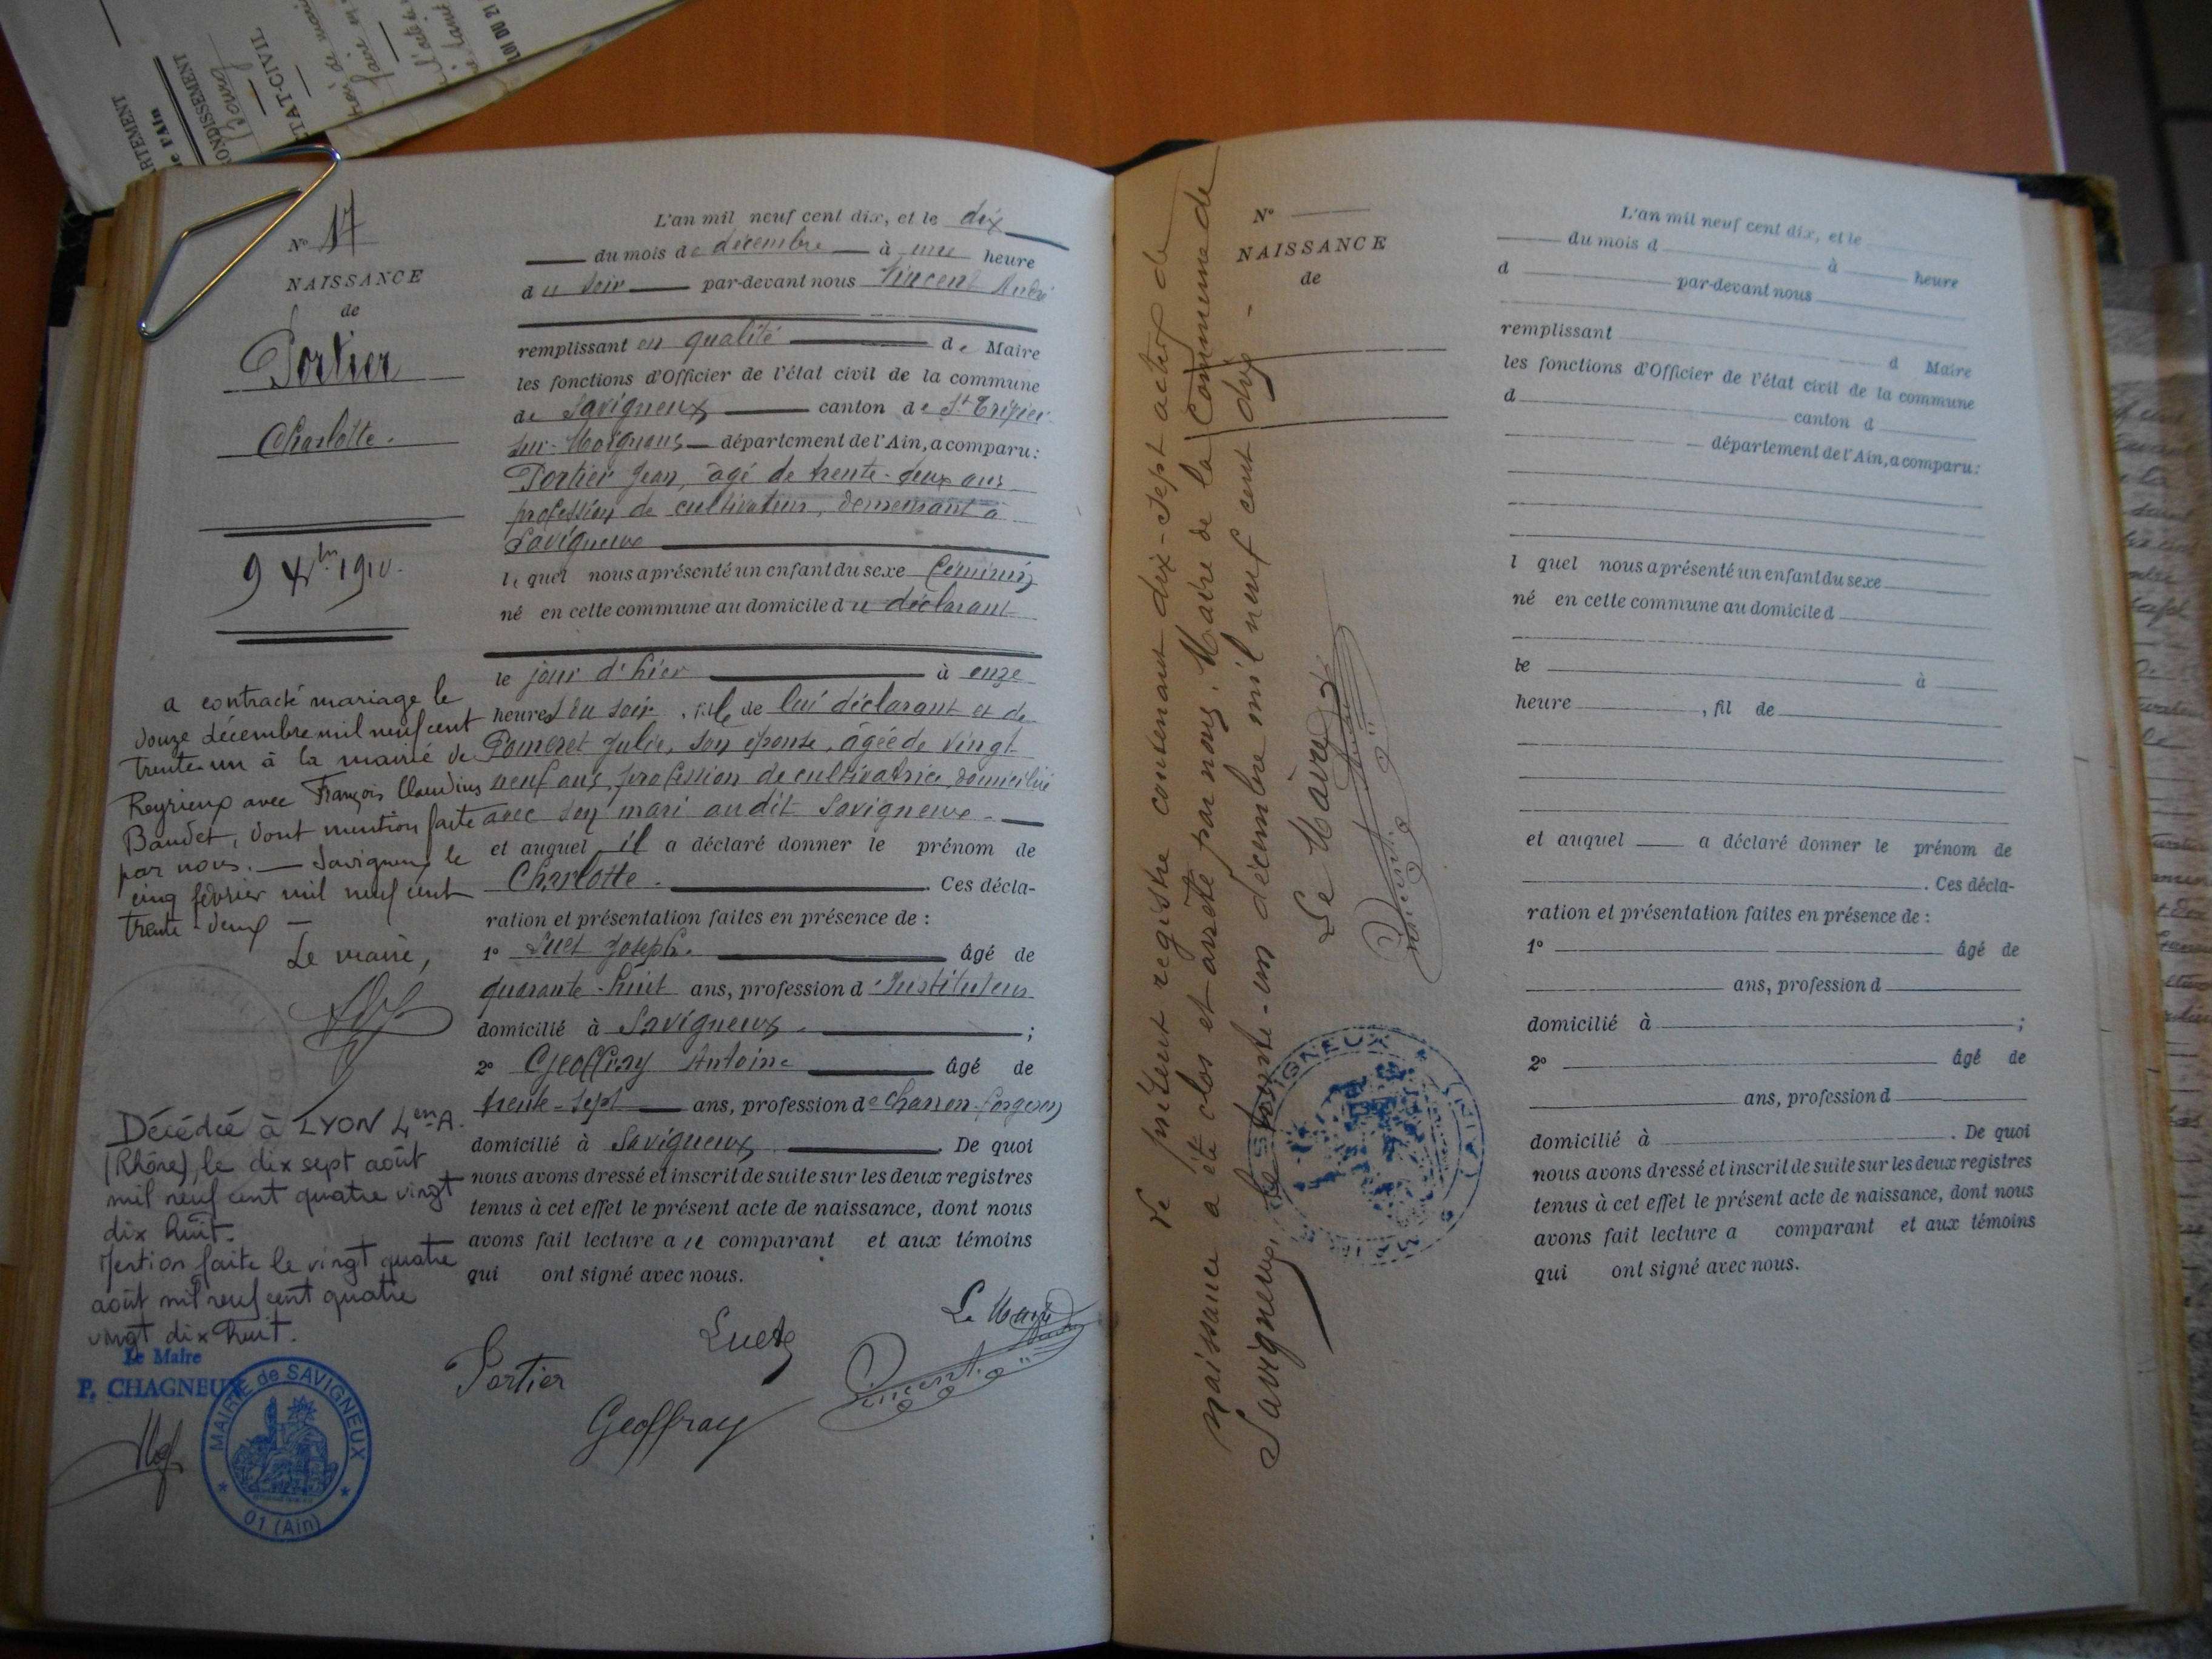 ARTEMENT
de l'Ain
RONDISSEMENT
ÉTAT-CIVIL
LOI DU 21
N° 17
NAISSANCE
de
Portier
Charlotte.
9 Xbre 1910.
a contracté mariage le
douze décembre mil neuf cent
trente-un à la mairie de
Reyrieux avec François Claudius
Baudet, dont mention faite
par nous. — Savigneux le
cinq février mil neuf cent
trente-deux —
Le maire,
Décédée à LYON 4em A.
(Rhône), le dix sept août
mil neuf cent quatre vingt
dix huit.
Mention faite le vingt quatre
août mil neuf cent quatre
vingt dix huit.
Le Maire
P. CHAGNEUX
MAIRIE de SAVIGNEUX
01 (Ain)
L'an mil neuf cent dix, et le dix
du mois de décembre à une heure
du soir par-devant nous Vincent André
remplissant en qualité de Maire
les fonctions d'Officier de l'état civil de la commune
de Savigneux canton de St Trivier
sur-Moignans département de l'Ain, a comparu:
Portier Jean, âgé de trente-deux ans
profession de cultivateur, demeurant à
Savigneux
lequel nous a présenté un enfant du sexe féminin
né en cette commune au domicile du déclarant
le jour d'hier à onze
heures du soir, fille de lui déclarant et de
Julie, son épouse, âgée de vingt
neuf ans, profession de cultivatrice, domiciliée
avec son mari audit Savigneux.
et auquel il a déclaré donner le prénom de
Charlotte. Ces décla-
ration et présentation faites en présence de :
1° Luet Joseph. âgé de
quarante-huit ans, profession d'Instituteur
domicilié à Savigneux ;
2° Geoffray Antoine âgé de
trente-sept ans, profession de charron-forgeron
domicilié à Savigneux De quoi
nous avons dressé et inscrit de suite sur les deux registres
tenus à cet effet le présent acte de naissance, dont nous
avons fait lecture au comparant et aux témoins
qui ont signé avec nous.
Le Maire
Luet
Portier
Vincent
Geoffray
Le présent registre contenant dix-sept actes de
naissance a été clos et arrêté par nous, Maire de la Commune de
Savigneux, le trente-un décembre mil neuf cent dix -
Le Maire
Vincent
N°
NAISSANCE
de
L'an mil neuf cent dix, et le
du mois d à heure
d par-devant nous
remplissant d Maire
les fonctions d'Officier de l'état civil de la commune
d canton d
département de l'Ain, a comparu:
l quel nous a présenté un enfant du sexe
né en cette commune au domicile d
le à
heure , fil de
et auquel a déclaré donner le prénom de
. Ces décla-
ration et présentation faites en présence de :
1° âgé de
ans, profession d
domicilié à ;
2° âgé de
ans, profession d
domicilié à . De quoi
nous avons dressé et inscrit de suite sur les deux registres
tenus à cet effet le présent acte de naissance, dont nous
avons fait lecture a comparant et aux témoins
qui ont signé avec nous.